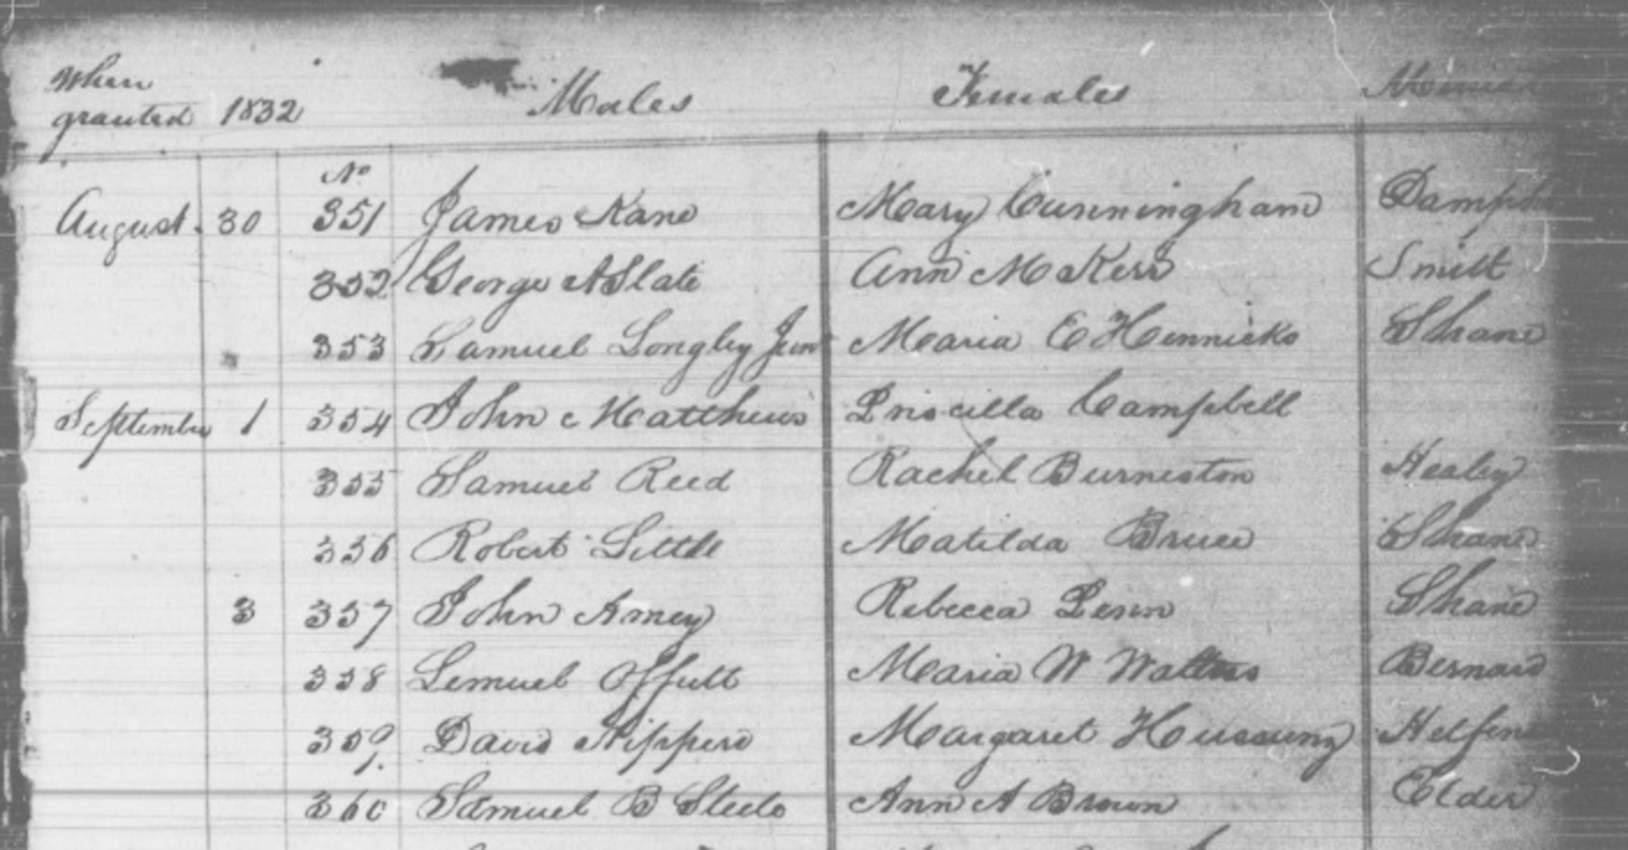 When
granted 1832 Males Females
No
August. 30 351 James Kane Mary Cunningham
352 George A Slate Ann McKerr Smitt
353 Samuel Longley Junr Maria E Hennicks Shane
September 1 354 John Matthews Priscilla Campbell
355 Samuel Reed Rachel Burneston Healey
356 Robert Little Matilda Bruce Shane
3 357 John Amey Rebecca Penn Shane
358 Lemuel Offutt Maria W Walters Bernard
359. David Hippero Margaret Helfen
360 Samuel B Steele Ann A Brown Elder